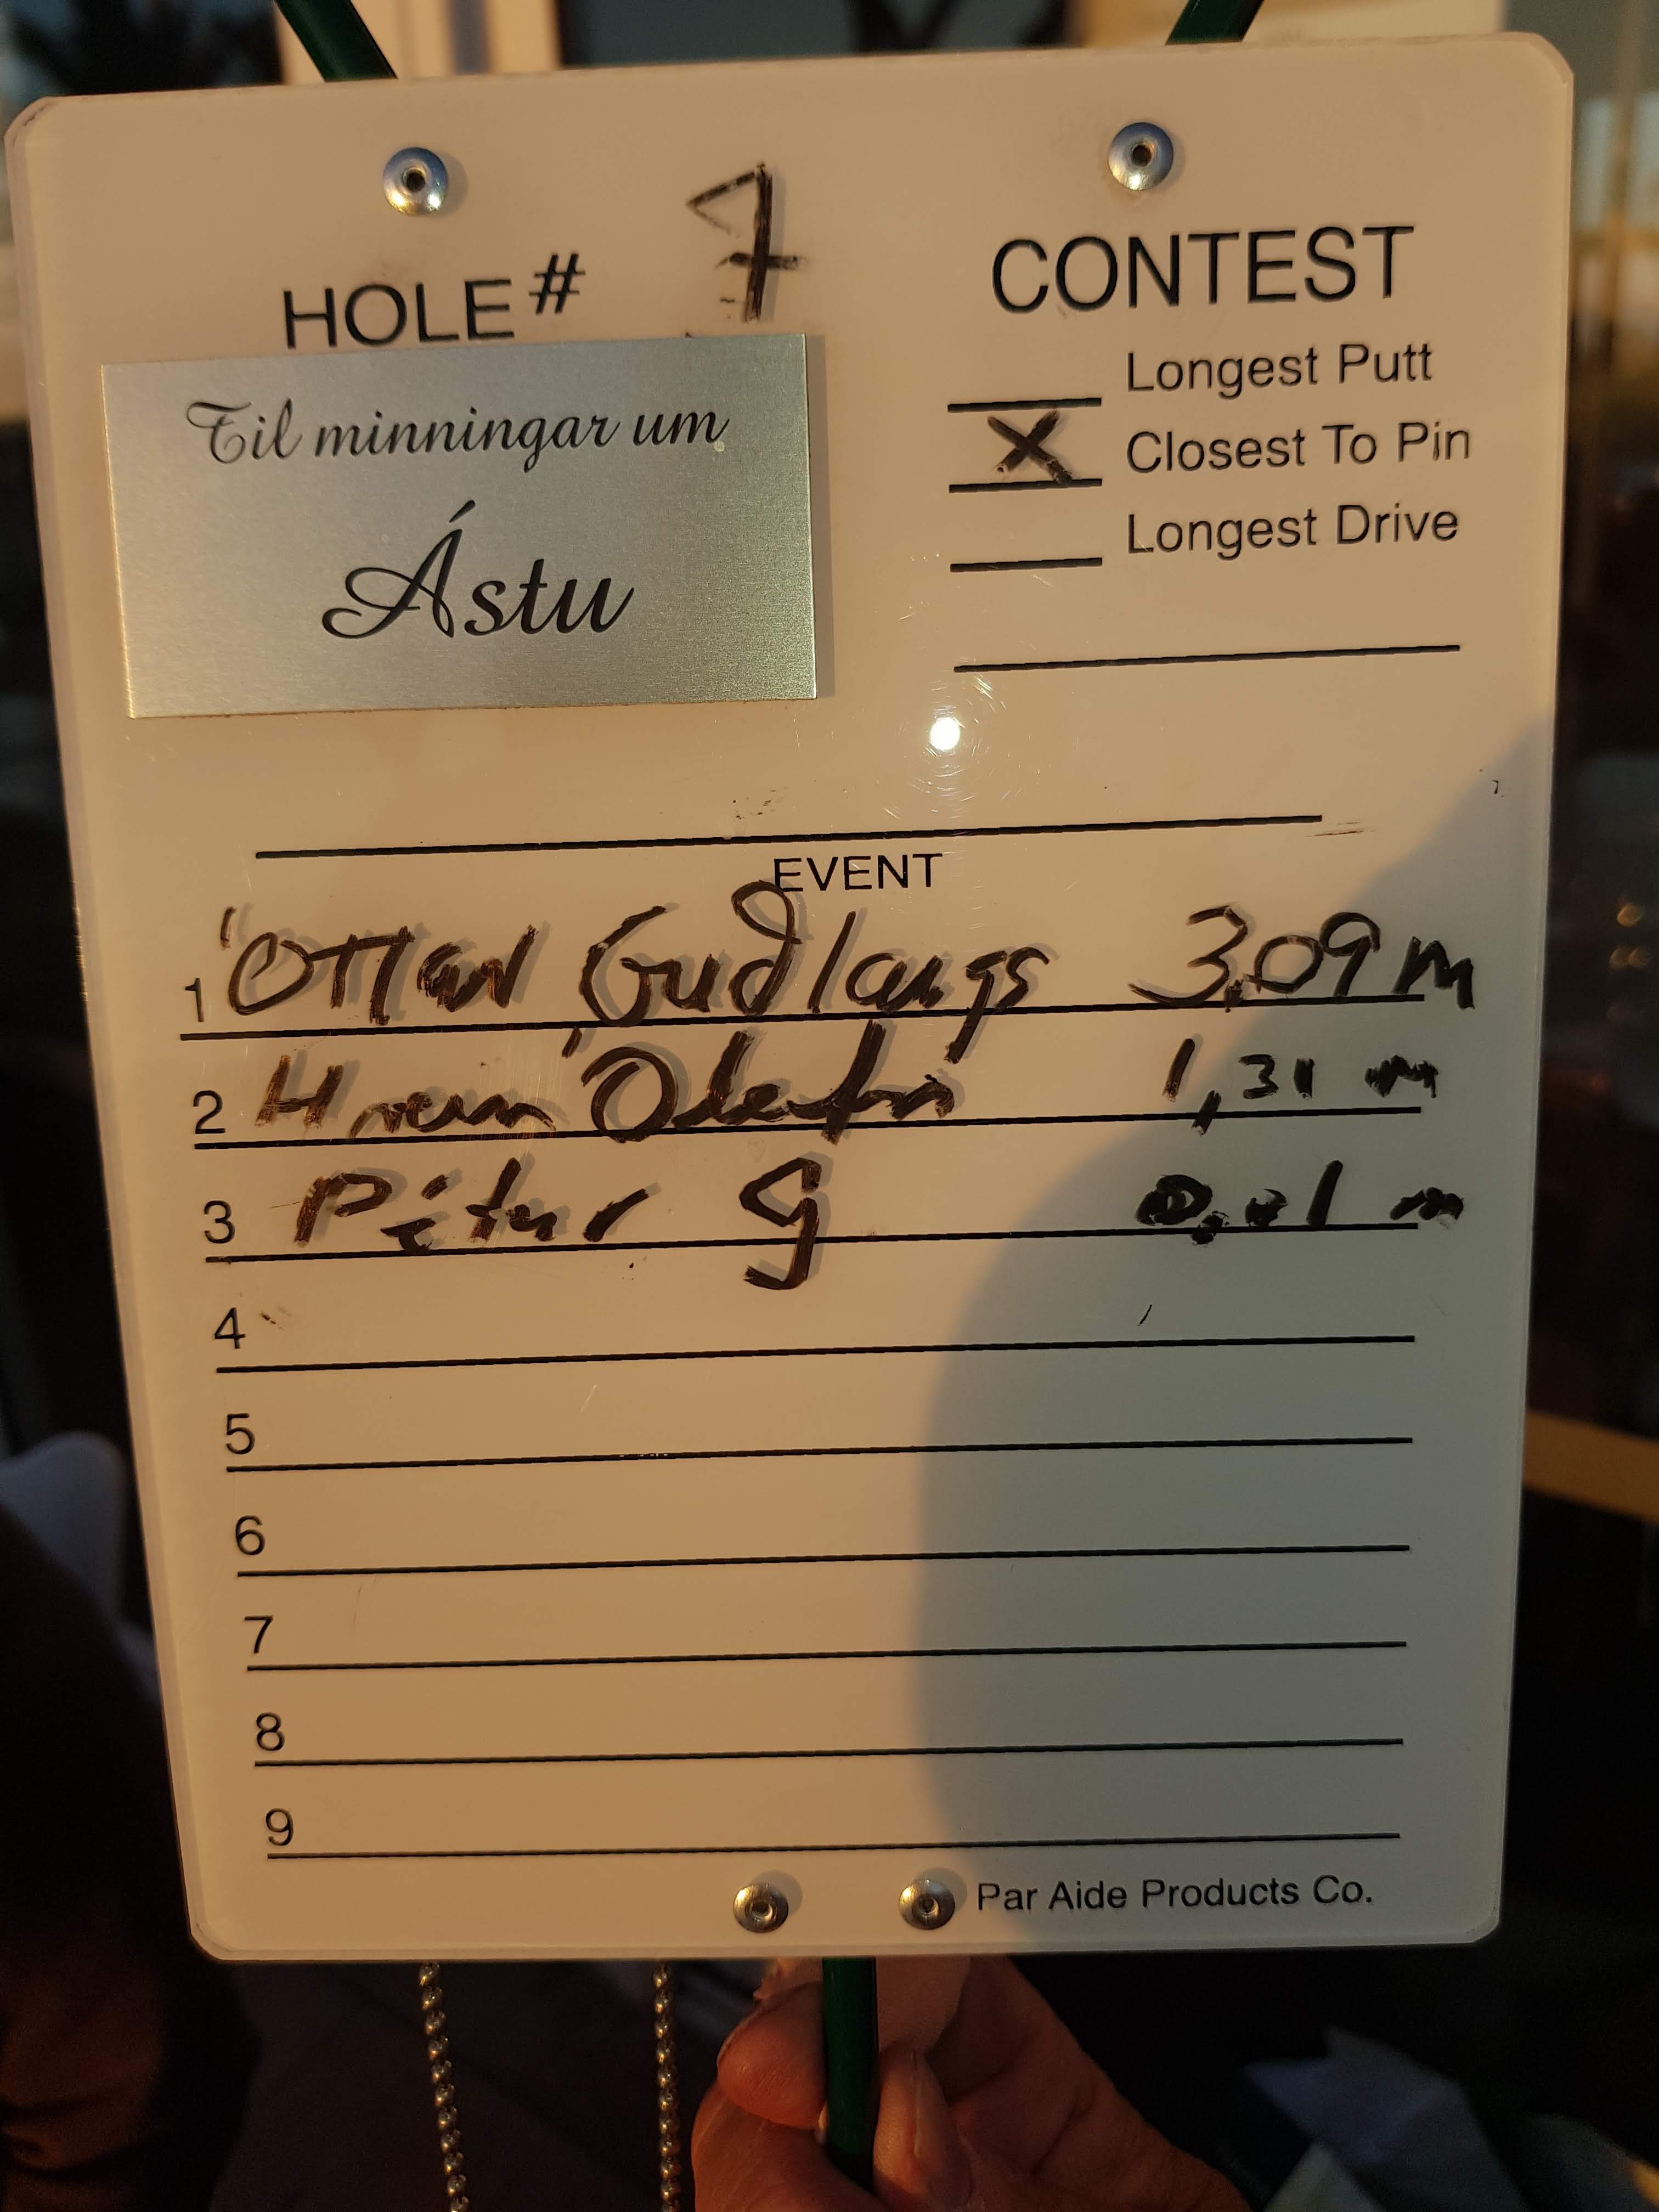 HOLE # 7
CONTEST
Longest Putt
X Closest To Pin
Longest Drive
Til minningar um
Ástu
EVENT
1 Óttar Guðlaugs 3,09 m
2 Hrann Ólafs 1,31 m
3 Pétur G m
4
5
6
7
8
9
Par Aide Products Co.